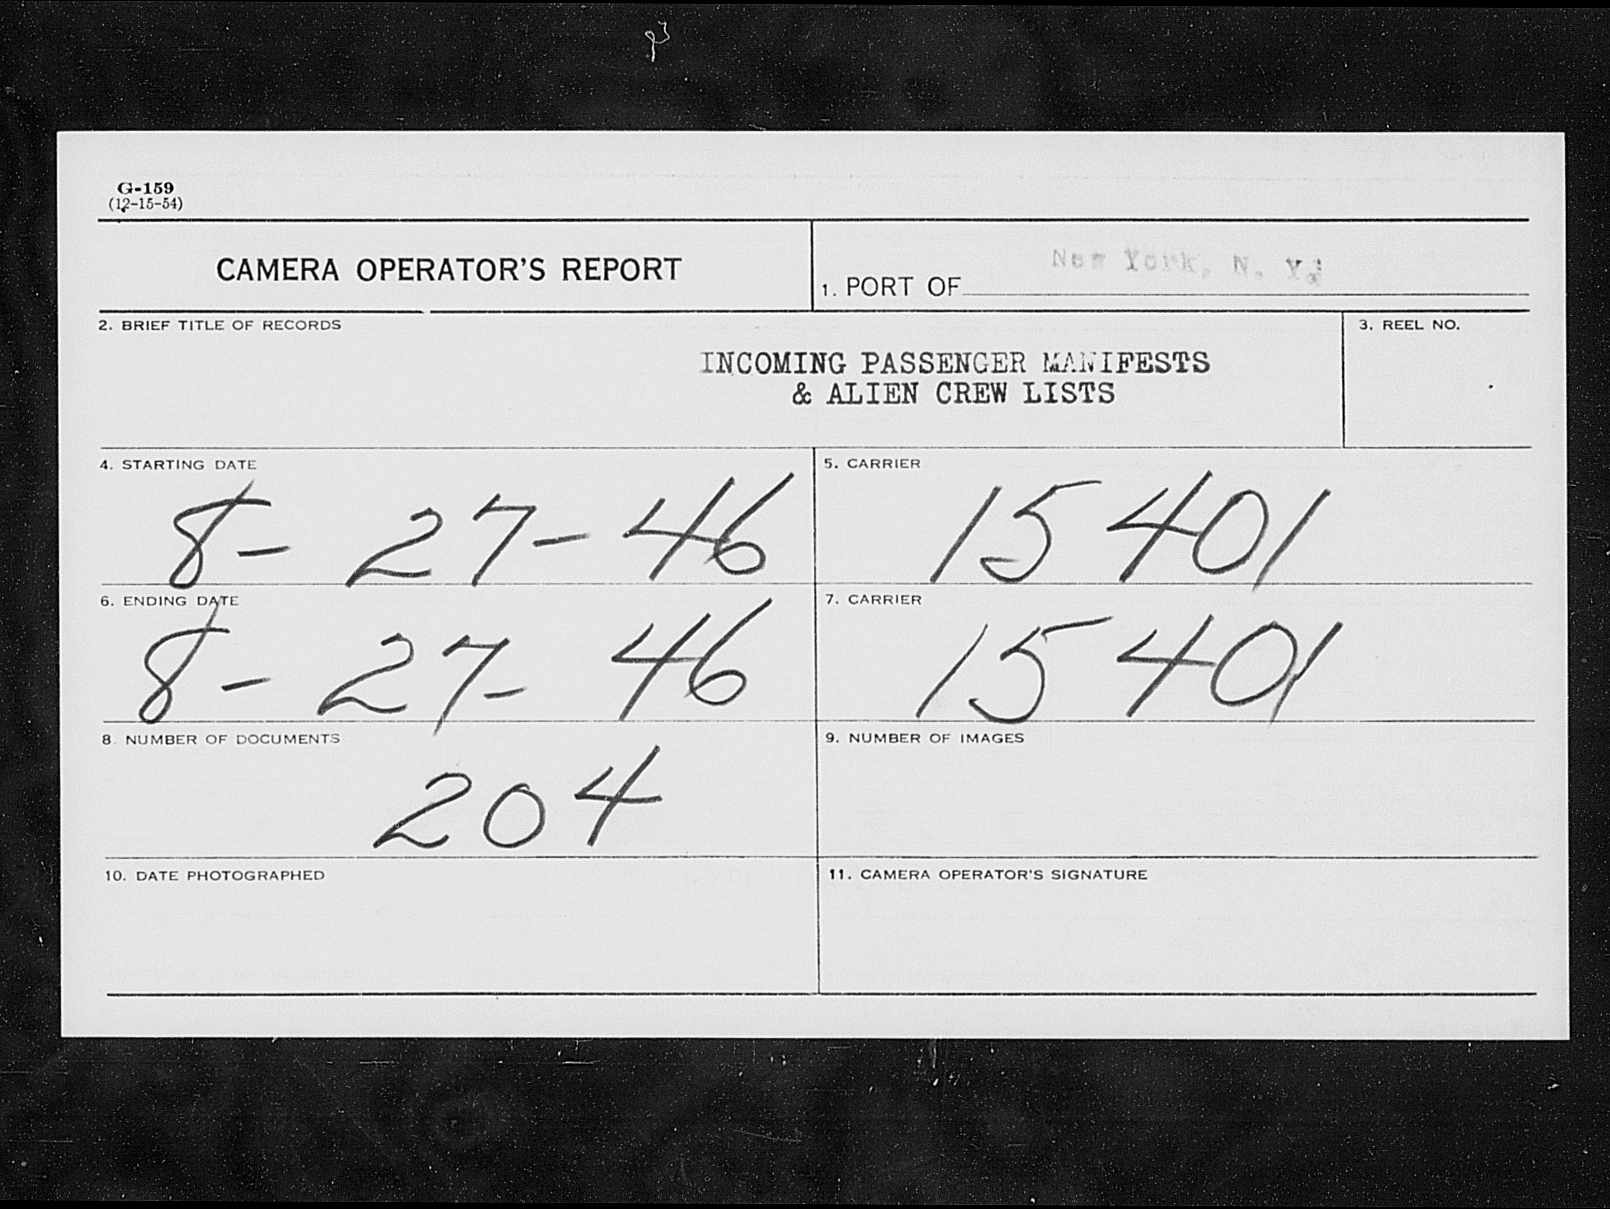 G-159
(12-15-54)
CAMERA OPERATOR'S REPORT
1. PORT OF New York, N. Y.
2. BRIEF TITLE OF RECORDS
INCOMING PASSENGER MANIFESTS
& ALIEN CREW LISTS
3. REEL NO.
4. STARTING DATE
8-27-46
5. CARRIER
15401
6. ENDING DATE
8-27-46
7. CARRIER
15401
8. NUMBER OF DOCUMENTS
204
9. NUMBER OF IMAGES
10. DATE PHOTOGRAPHED
11. CAMERA OPERATOR'S SIGNATURE